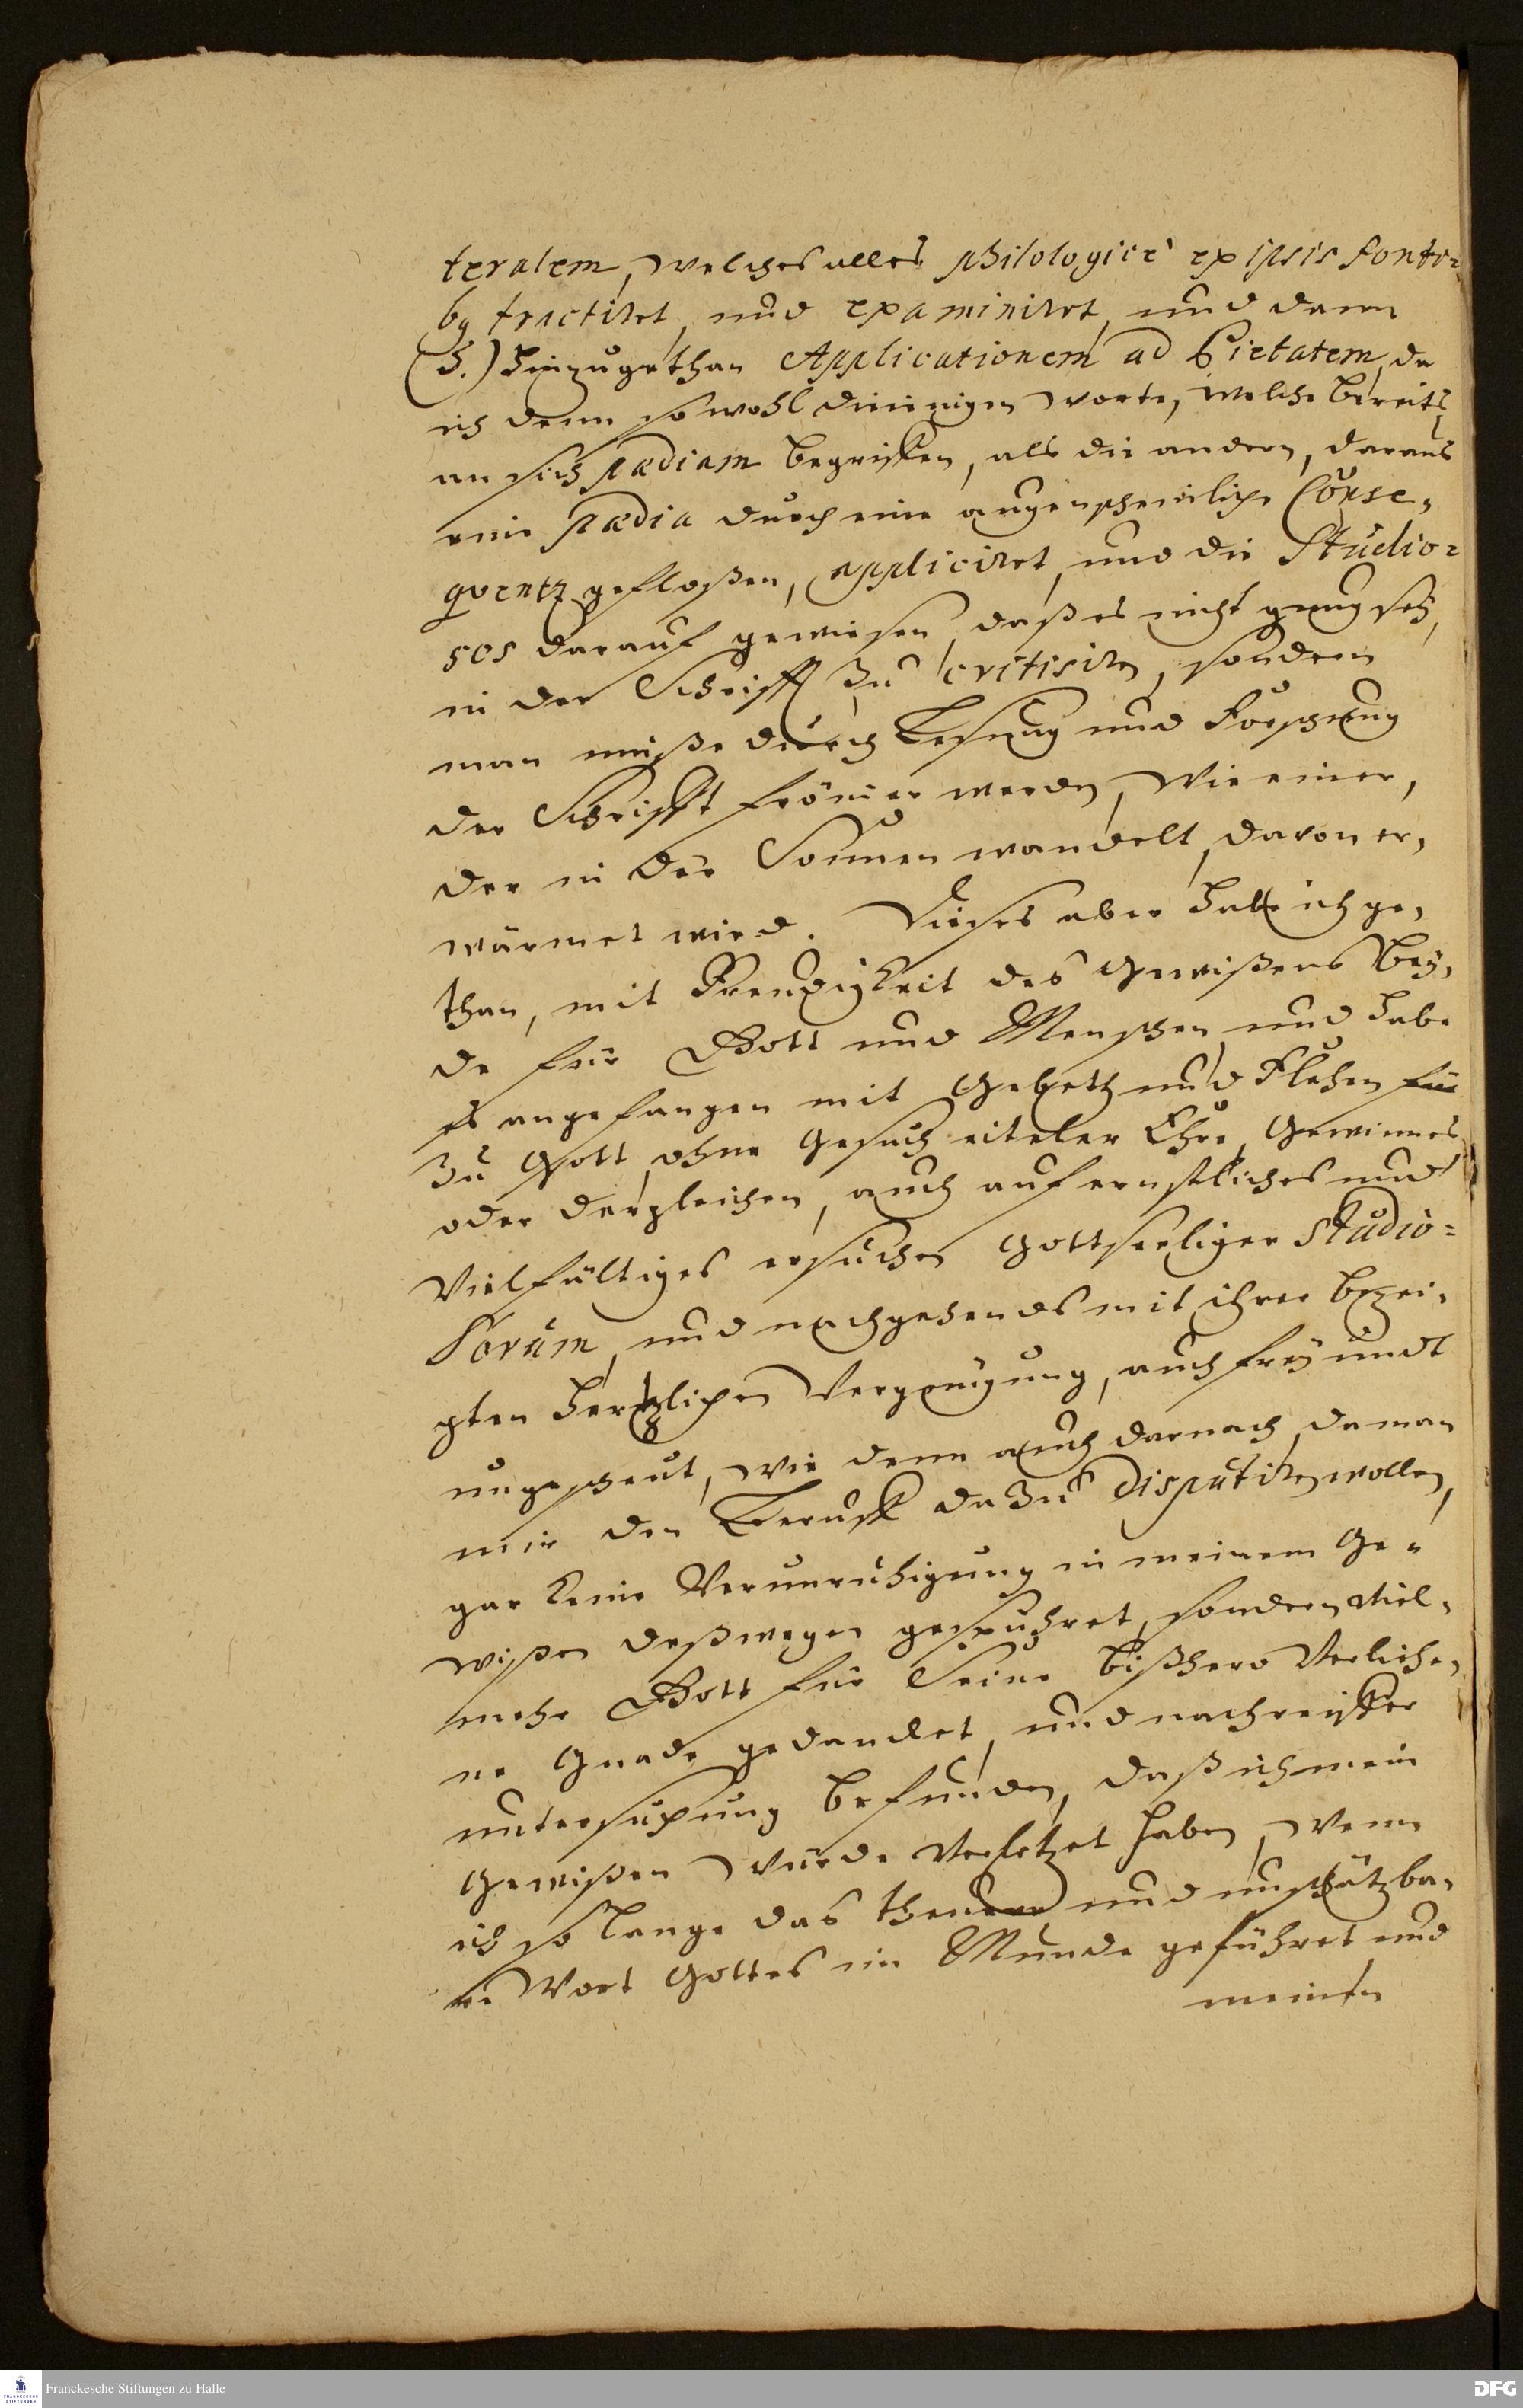 teralem, welches alles philologicè ex ipsis fonti-
bꝯ tractiret, und examiniret, und dann
(3.) hinzugethan Applicationem ad Pietatem, da
ich denn sowohl diejenigen worte, welche bereits
an sich pædiam begriffen, als die andern, daraus
eine pædia durch eine augenscheinliche Conse-
qventz geflossen, appliciret, und die Studio-
sos darauf gewiesen, daß es nicht gnug sey,
in der Schrifft zu critisiren, sondern
man müße durch Lesung und Forschung
der Schrifft frömer werden, wie einer,
der in der Sonnen wandelt, davon er-
wärmet wird. Dieses aber habe ich ge-
than, mit Freudigkeit des Gewißens bey-
de für Gott und Menschen, und habe
es angefangen mit Gebeth und Flehen für
zu Gott, ohne Gesuch eiteler Ehre, Gewinnes
oder dergleichen, auch auf ernstliches und
vielfältiges ersuchen Gottseeliger Studio-
sorum, und nachgehends mit ihrer bezei-
gten hertzlichen Vergnügung, auch frey undt
ungescheut, wie denn auch darnach, da man
mir den Beruff dazu disputiren wollen,
gar keine Verunruhigung in meinem Ge-
wißen deßwegen gespühret, sondern viel-
mehr Gott für Seine bißhero verliehe-
ne Gnade gedancket, und nach reiffer
untersuchung befunden, daß ich mein
Gewißen würde verletzet haben, wenn
ich so lange das theure und unschätzba-
re Wort Gottes im Munde geführet und
meinen
Franckesche Stiftungen zu Halle
DFG